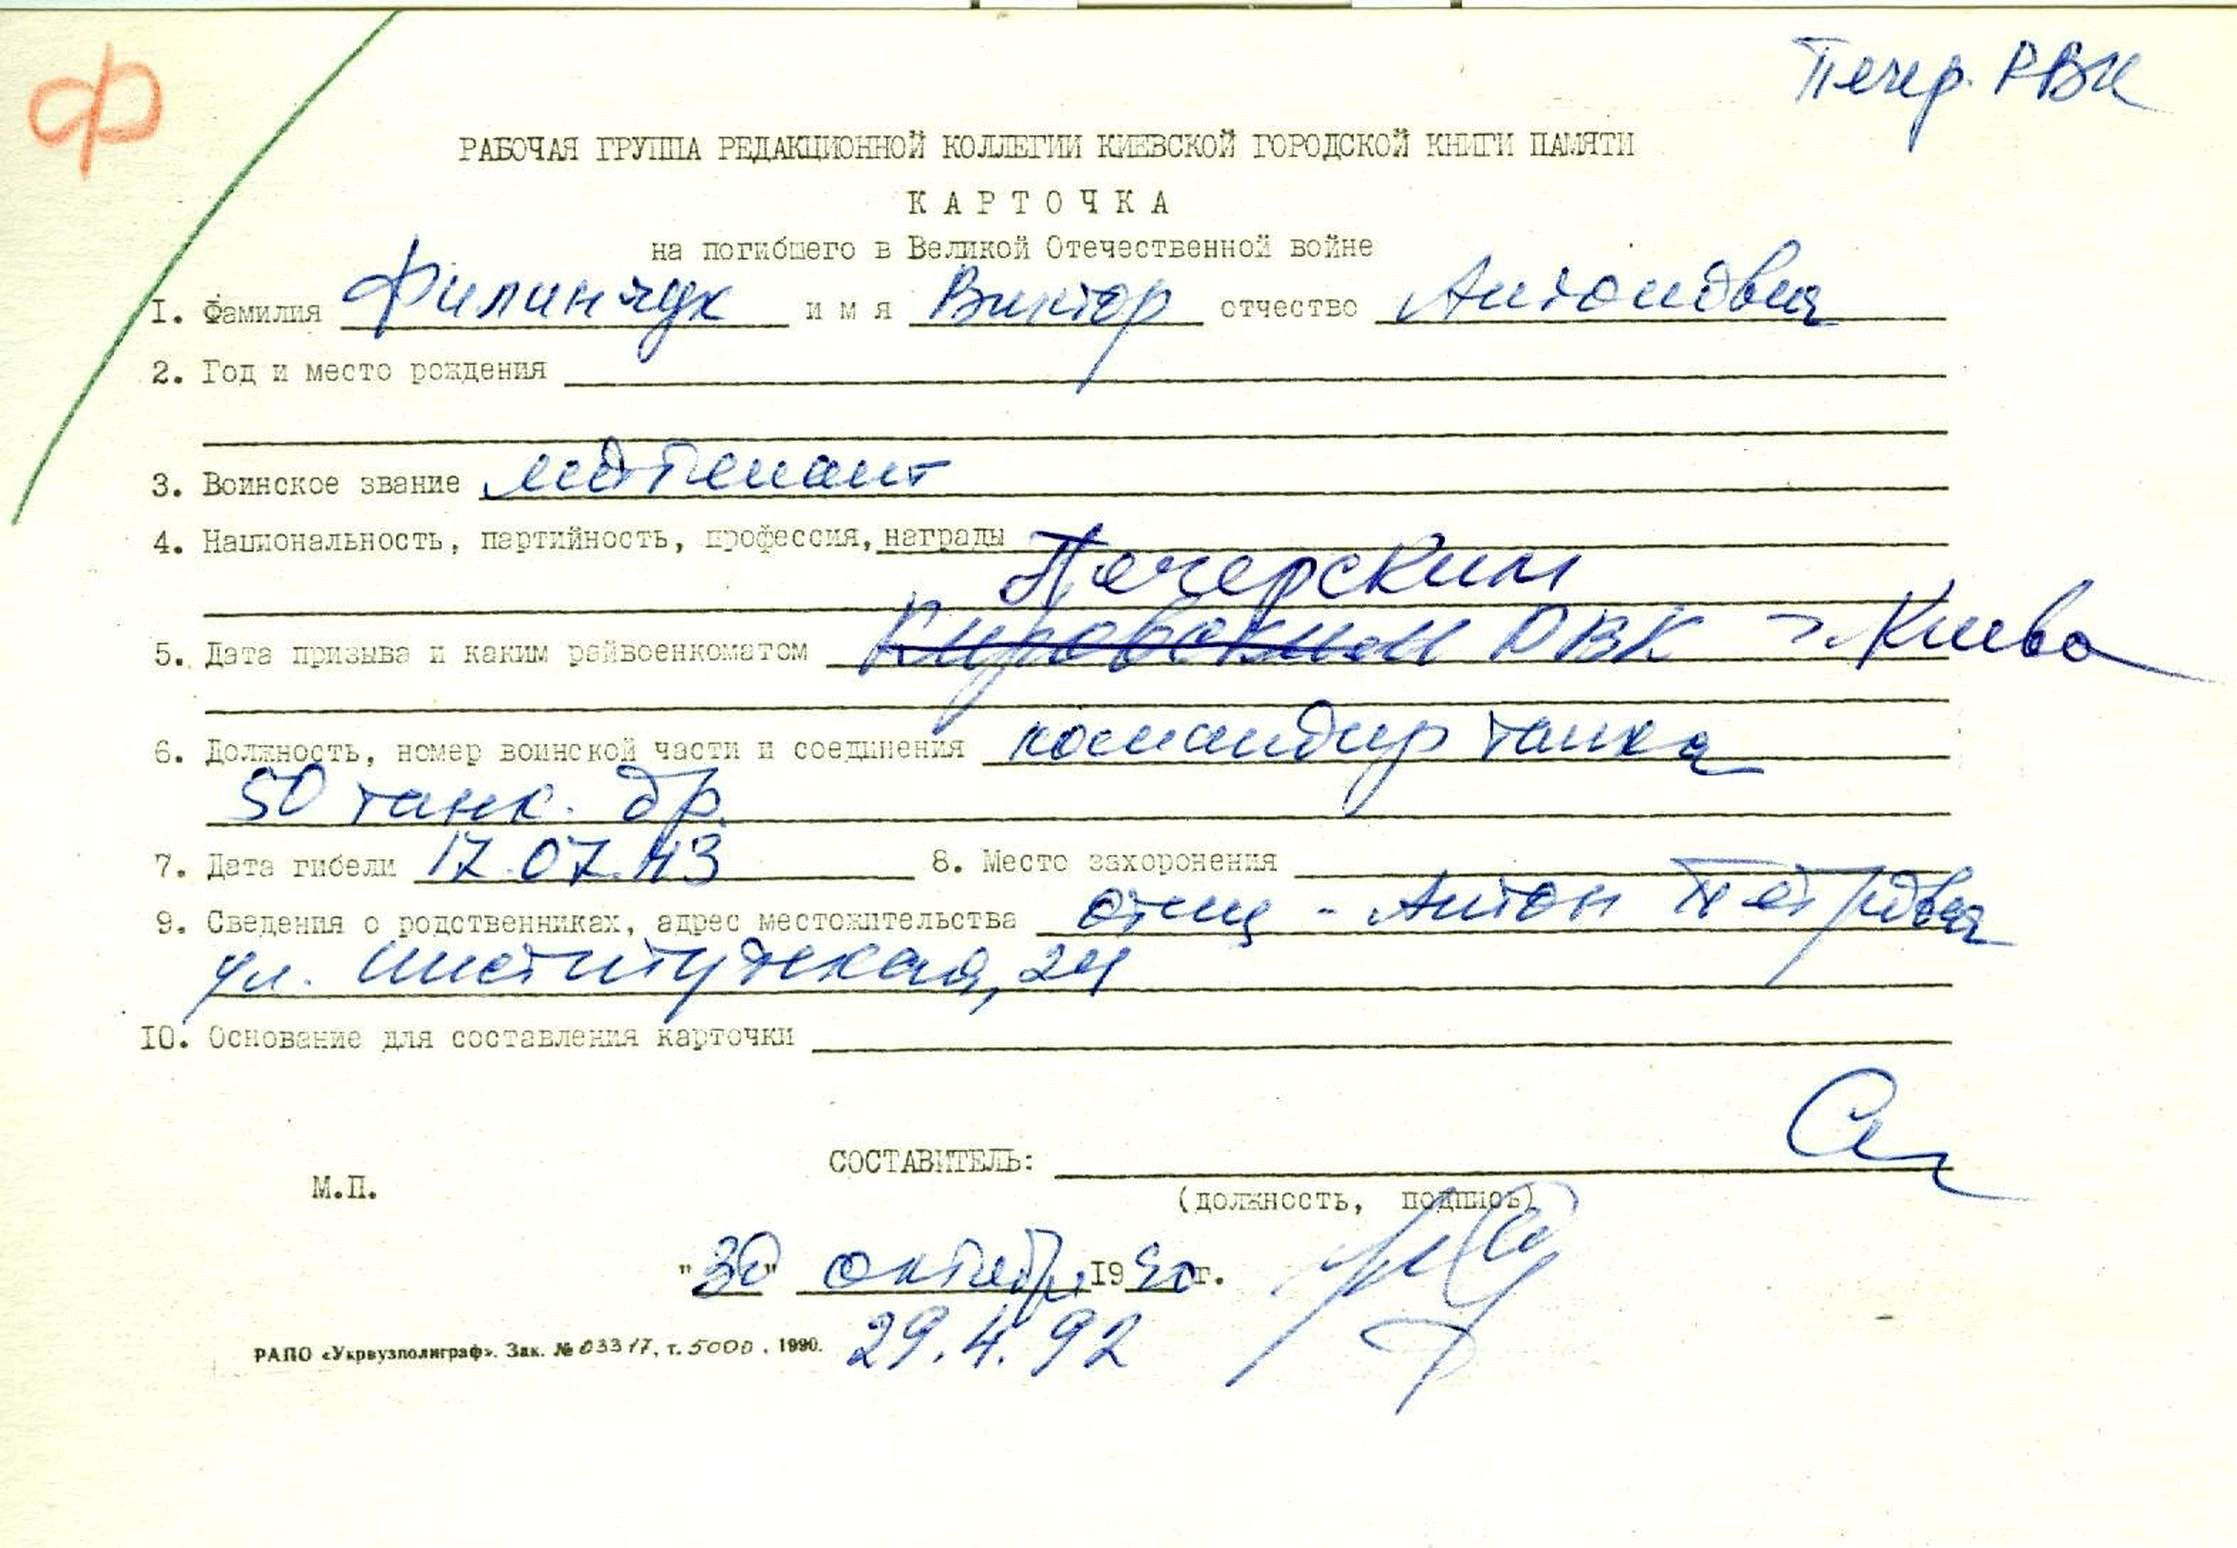 Ф
Печер. РВК
РАБОЧАЯ ГРУППА РЕДАКЦИОННОЙ КОЛЛЕГИИ КИЕВСКОЙ ГОРОДСКОЙ КНИГИ ПАМЯТИ
КАРТОЧКА
на погибшего в Великой Отечественной войне
I. Фамилия Филинчук имя Виктор отчество Антонович
2. Год и место рождения
3. Воинское звание лейтенант
4. Национальность, партийность, профессия, награды
Печерским
5. Дата призыва и каким райвоенкоматом Кировским РВК г. Киева
6. Должность, номер воинской части и соединения командир танка
50 танк. бр.
7. Дата гибели 17.07.43 8. Место захоронения
9. Сведения о родственниках, адрес местожительства отец - Антон Петрович
ул. Институтская, 24
IO. Основание для составления карточки
СОСТАВИТЕЛЬ:
М.П.
(должность, подпись)
"30" октября 1990г.
29.4.92
РАПО «Укрвузполиграф». Зак. № 03317, т. 5000. 1990.